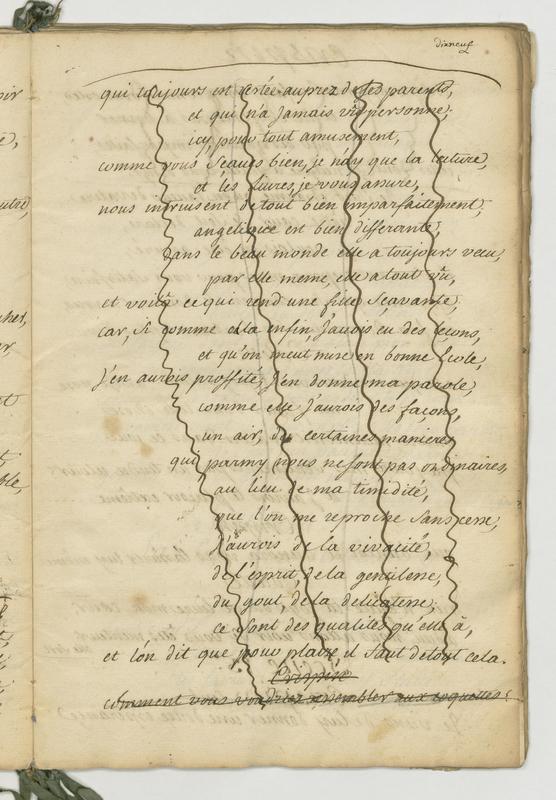 dixneuf
qui toujours est restée auprez de ses parents,
et qui n'a jamais vû personne;
icy, pour tout amusement,
comme vous scaués bien, je n'ay que la lecture,
et les livres, je vous assure,
nous instruisent de tout bien imparfaitement;
angelique est bien differante,
dans le beau monde elle a toujours vecu,
par elle meme, elle a tout vû,
et voila ce qui rend une fille scavante;
car, si comme elle enfin, j'auois eu des leçons,
et qu'on m'eut mise en bonne Ecole,
j'en aurois proffité, j'en donne ma parole,
comme elle j'aurois des façons,
un air, de certaines manieres
qui parmy nous ne sont pas ordinaires,
au lieu de ma timidité,
que l'on me reproche sans cesse,
j'aurois de la vivacité,
de l'esprit, de la gentilesse,
du gout, de la delicatesse;
ce sont des qualités qu'elle à,
et l'on dit que pour plaire il faut de tout cela.
comment vous voudriez ressembler aux coquettes